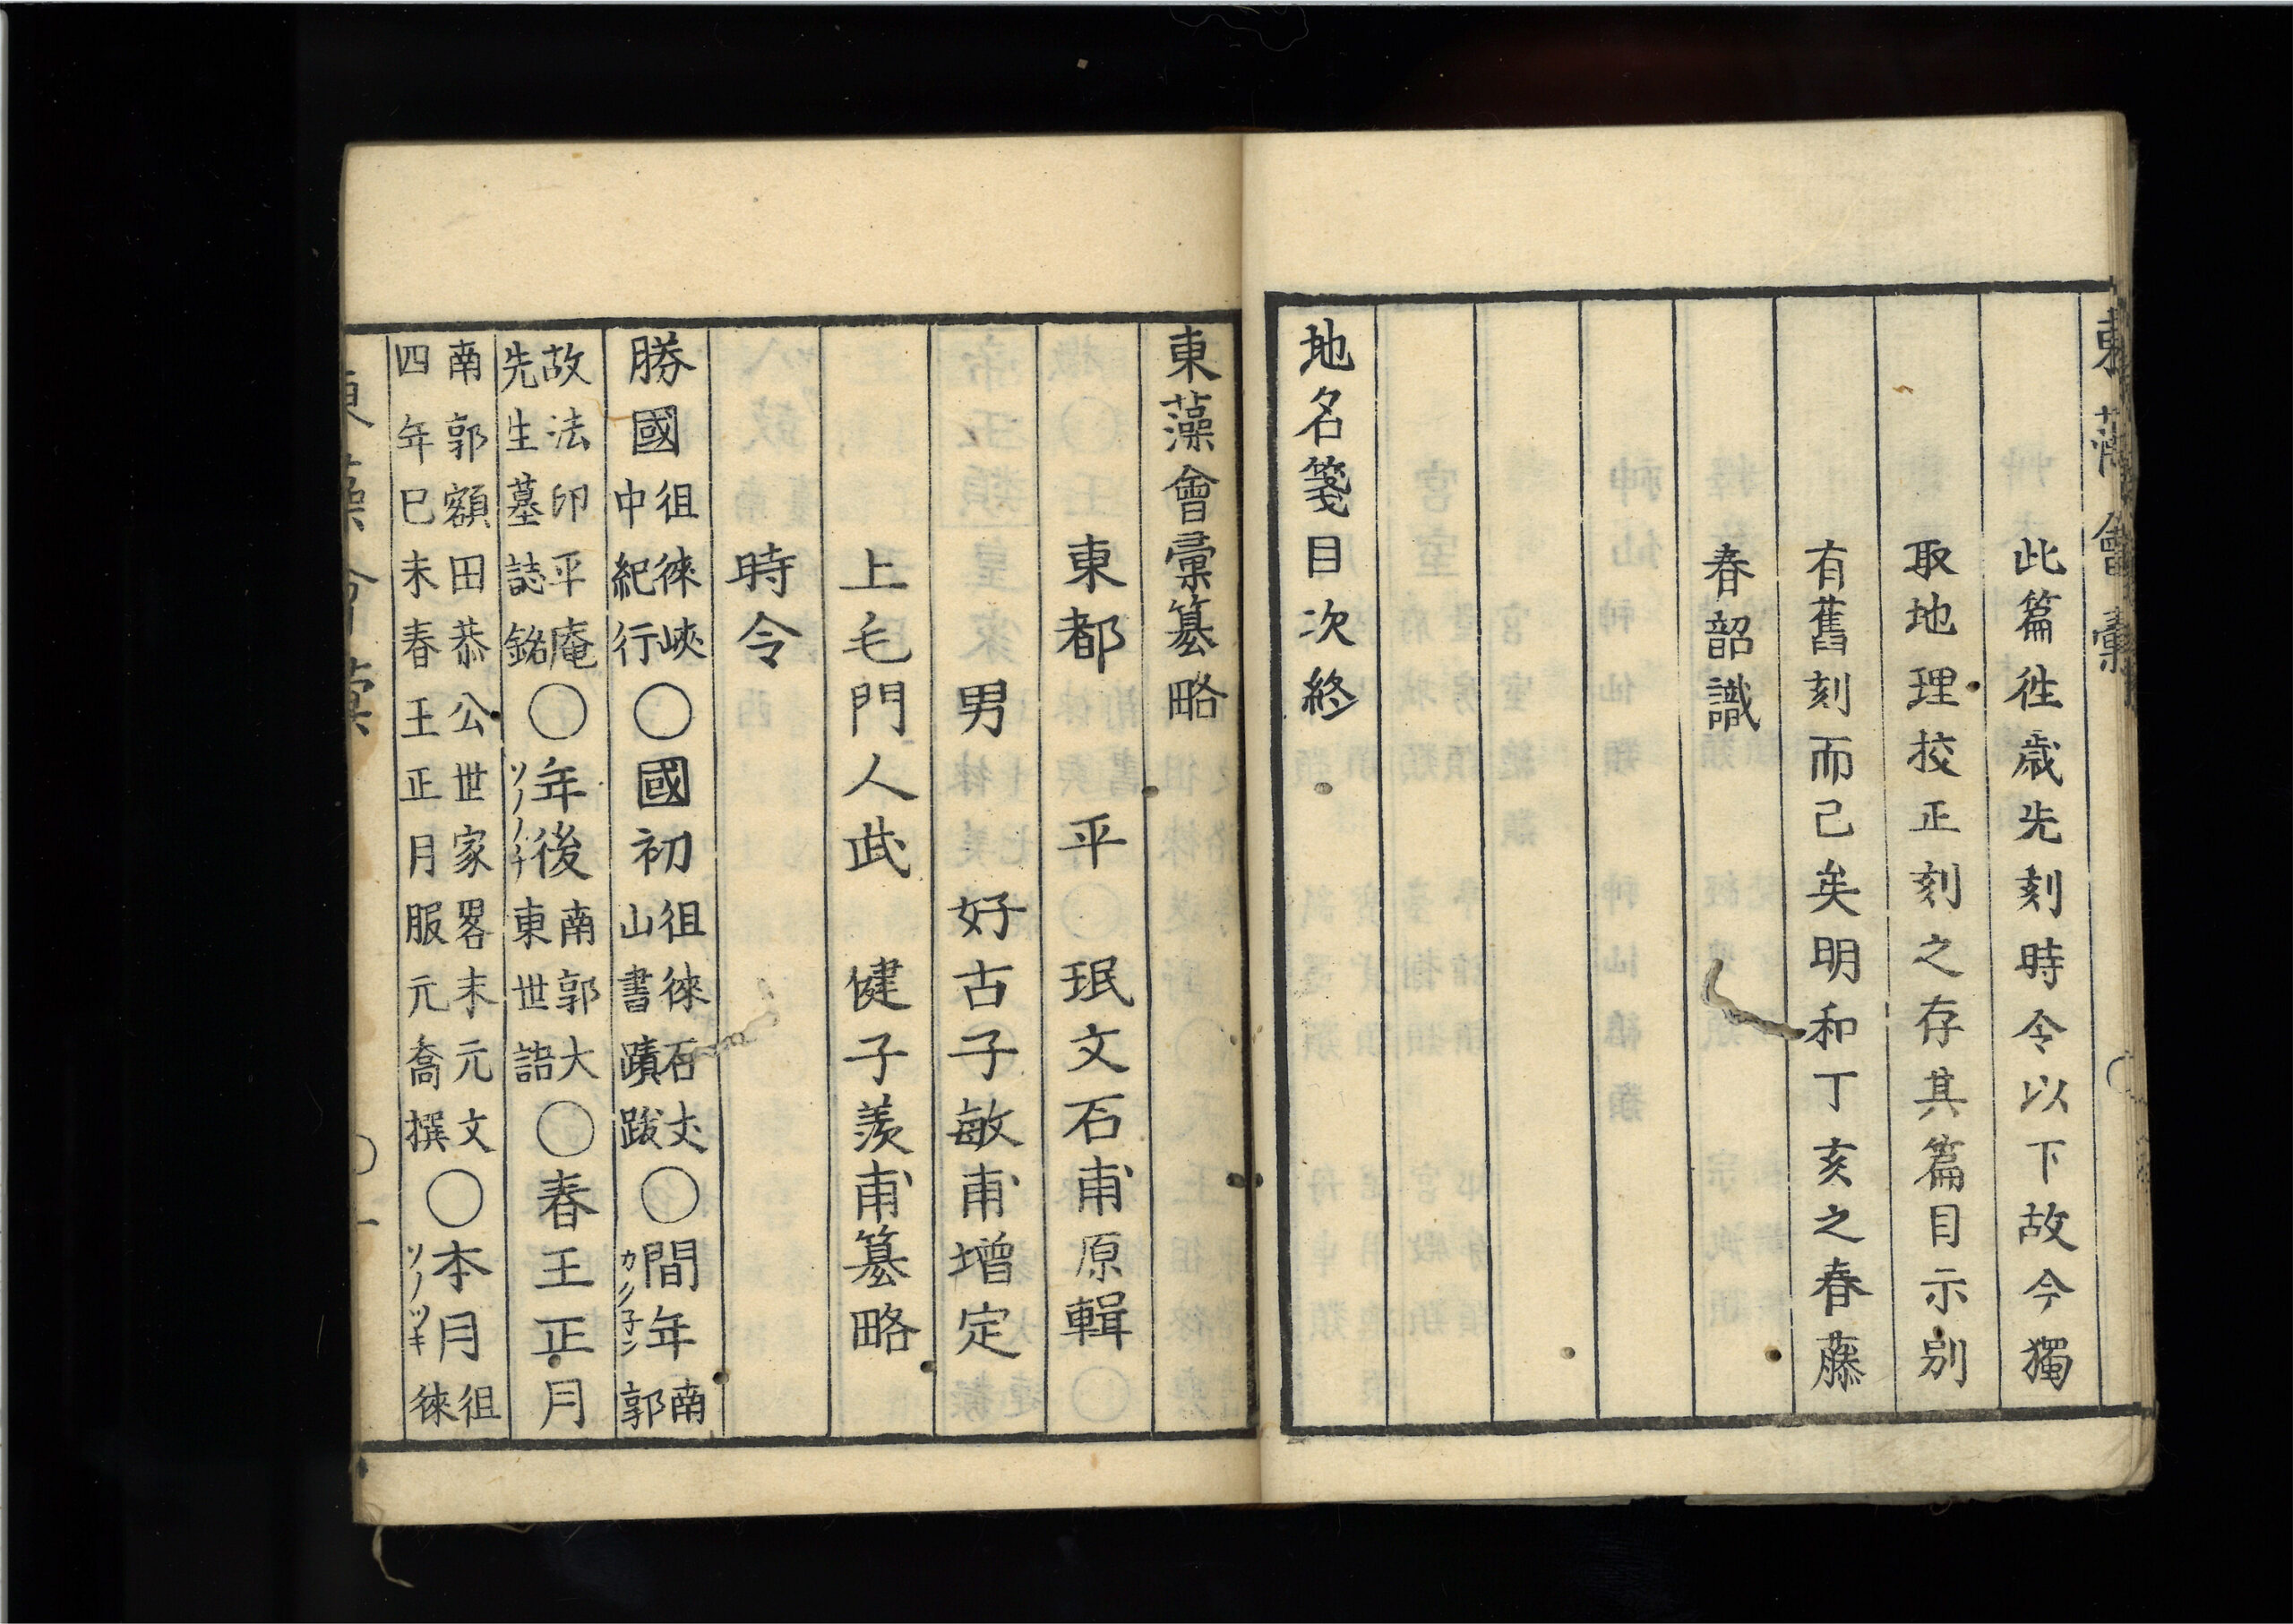 東藻會彙
此篇徃歳先刻時令以下故今獨
取地理挍正刻之存其篇目示別
有舊刻而已矣明和丁亥之春藤
春韶識
地名箋目次終
東藻會彙纂略
東都 平 珉文石甫原輯
男 好古子敏甫增定
上毛門人武 健子羨甫纂略
時令
勝國徂徠峽中紀行〇國初徂徠石丈山書蹟跋〇間年カンノ子ン南郭
故法印平庵先生墓誌銘〇年後ソノノチ南郭大東世語〇春王正月
南郭額田恭公世家畧末元文四年巳未春王正月服元喬撰〇本月ソノツキ徂徠
東藻會彙